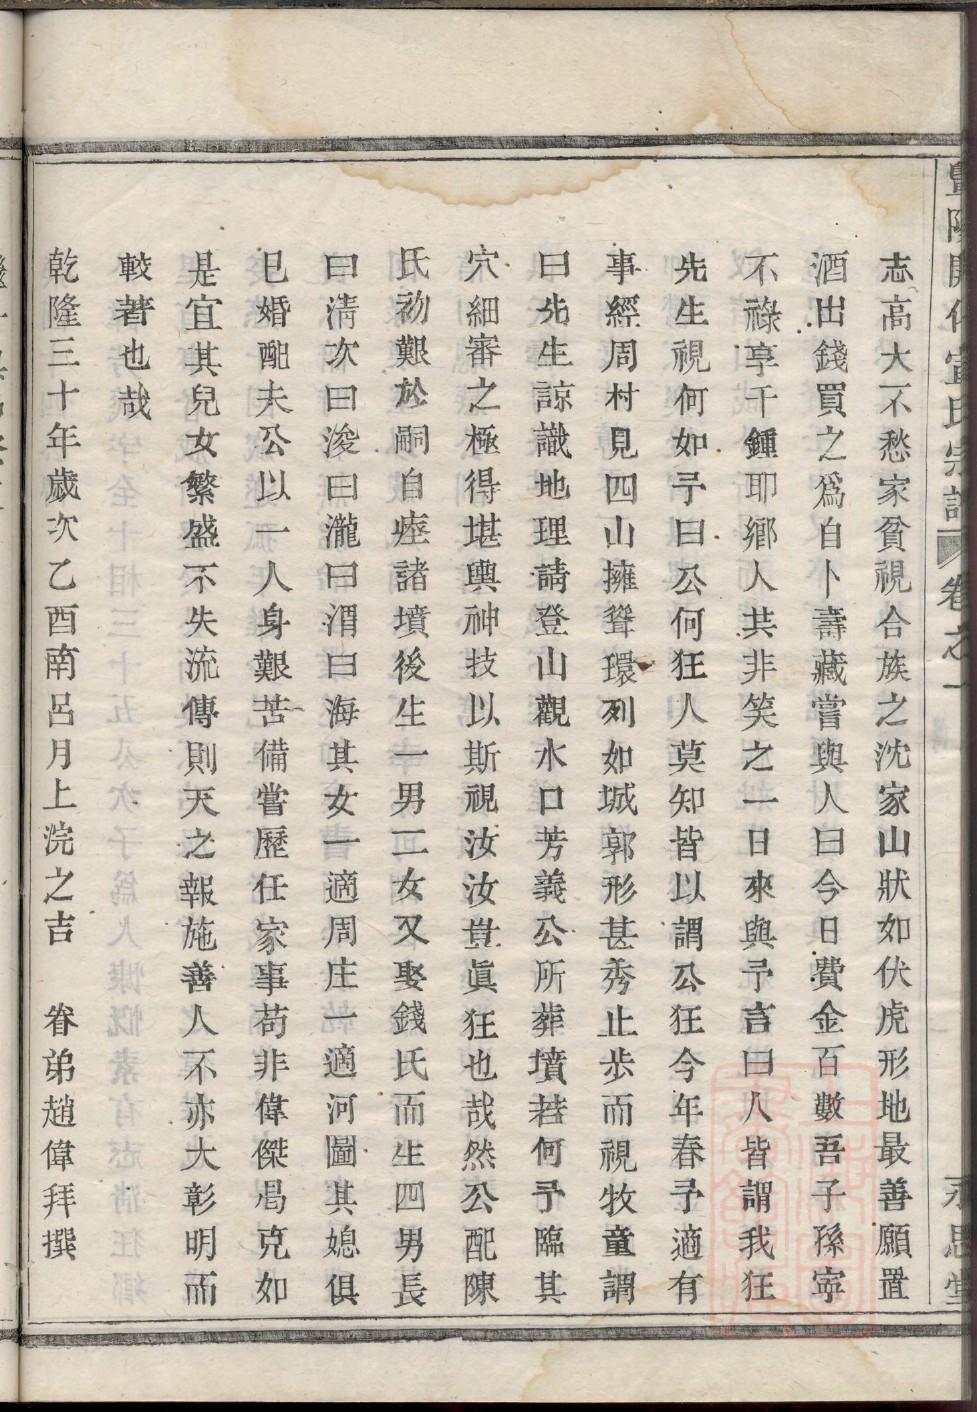 暨陽開化宣氏宗譜 卷之一 永思堂
志高大不愁家貧視合族之沈家山狀如伏虎形地最善願置
酒出錢買之爲自卜壽藏嘗與人曰今日費金百數吾子孫寧
不祿享千鍾耶鄉人共非笑之一日來與予言曰人皆謂我狂
先生視何如予曰公何狂人莫知皆以謂公狂今年春予適有
事經周村見四山擁聳環列如城郭形甚秀止步而視牧童謂
曰先生諒識地理請登山觀水口芳義公所葬墳若何予臨其
穴細審之極得堪輿神技以斯視汝汝豈眞狂也哉然公配陳
氏初艱於嗣自瘞諸墳後生一男二女又娶錢氏而生四男長
曰淸次曰浚曰瀧曰渭曰海其女一適周庄一適河圖其媳俱
已婚配夫公以一人身艱苦備嘗歷任家事苟非偉傑曷克如
是宜其兒女繁盛不失流傳則天之報施善人不亦大彰明而
較著也哉
乾隆三十年歲次乙酉南呂月上浣之吉 眷弟趙偉拜撰